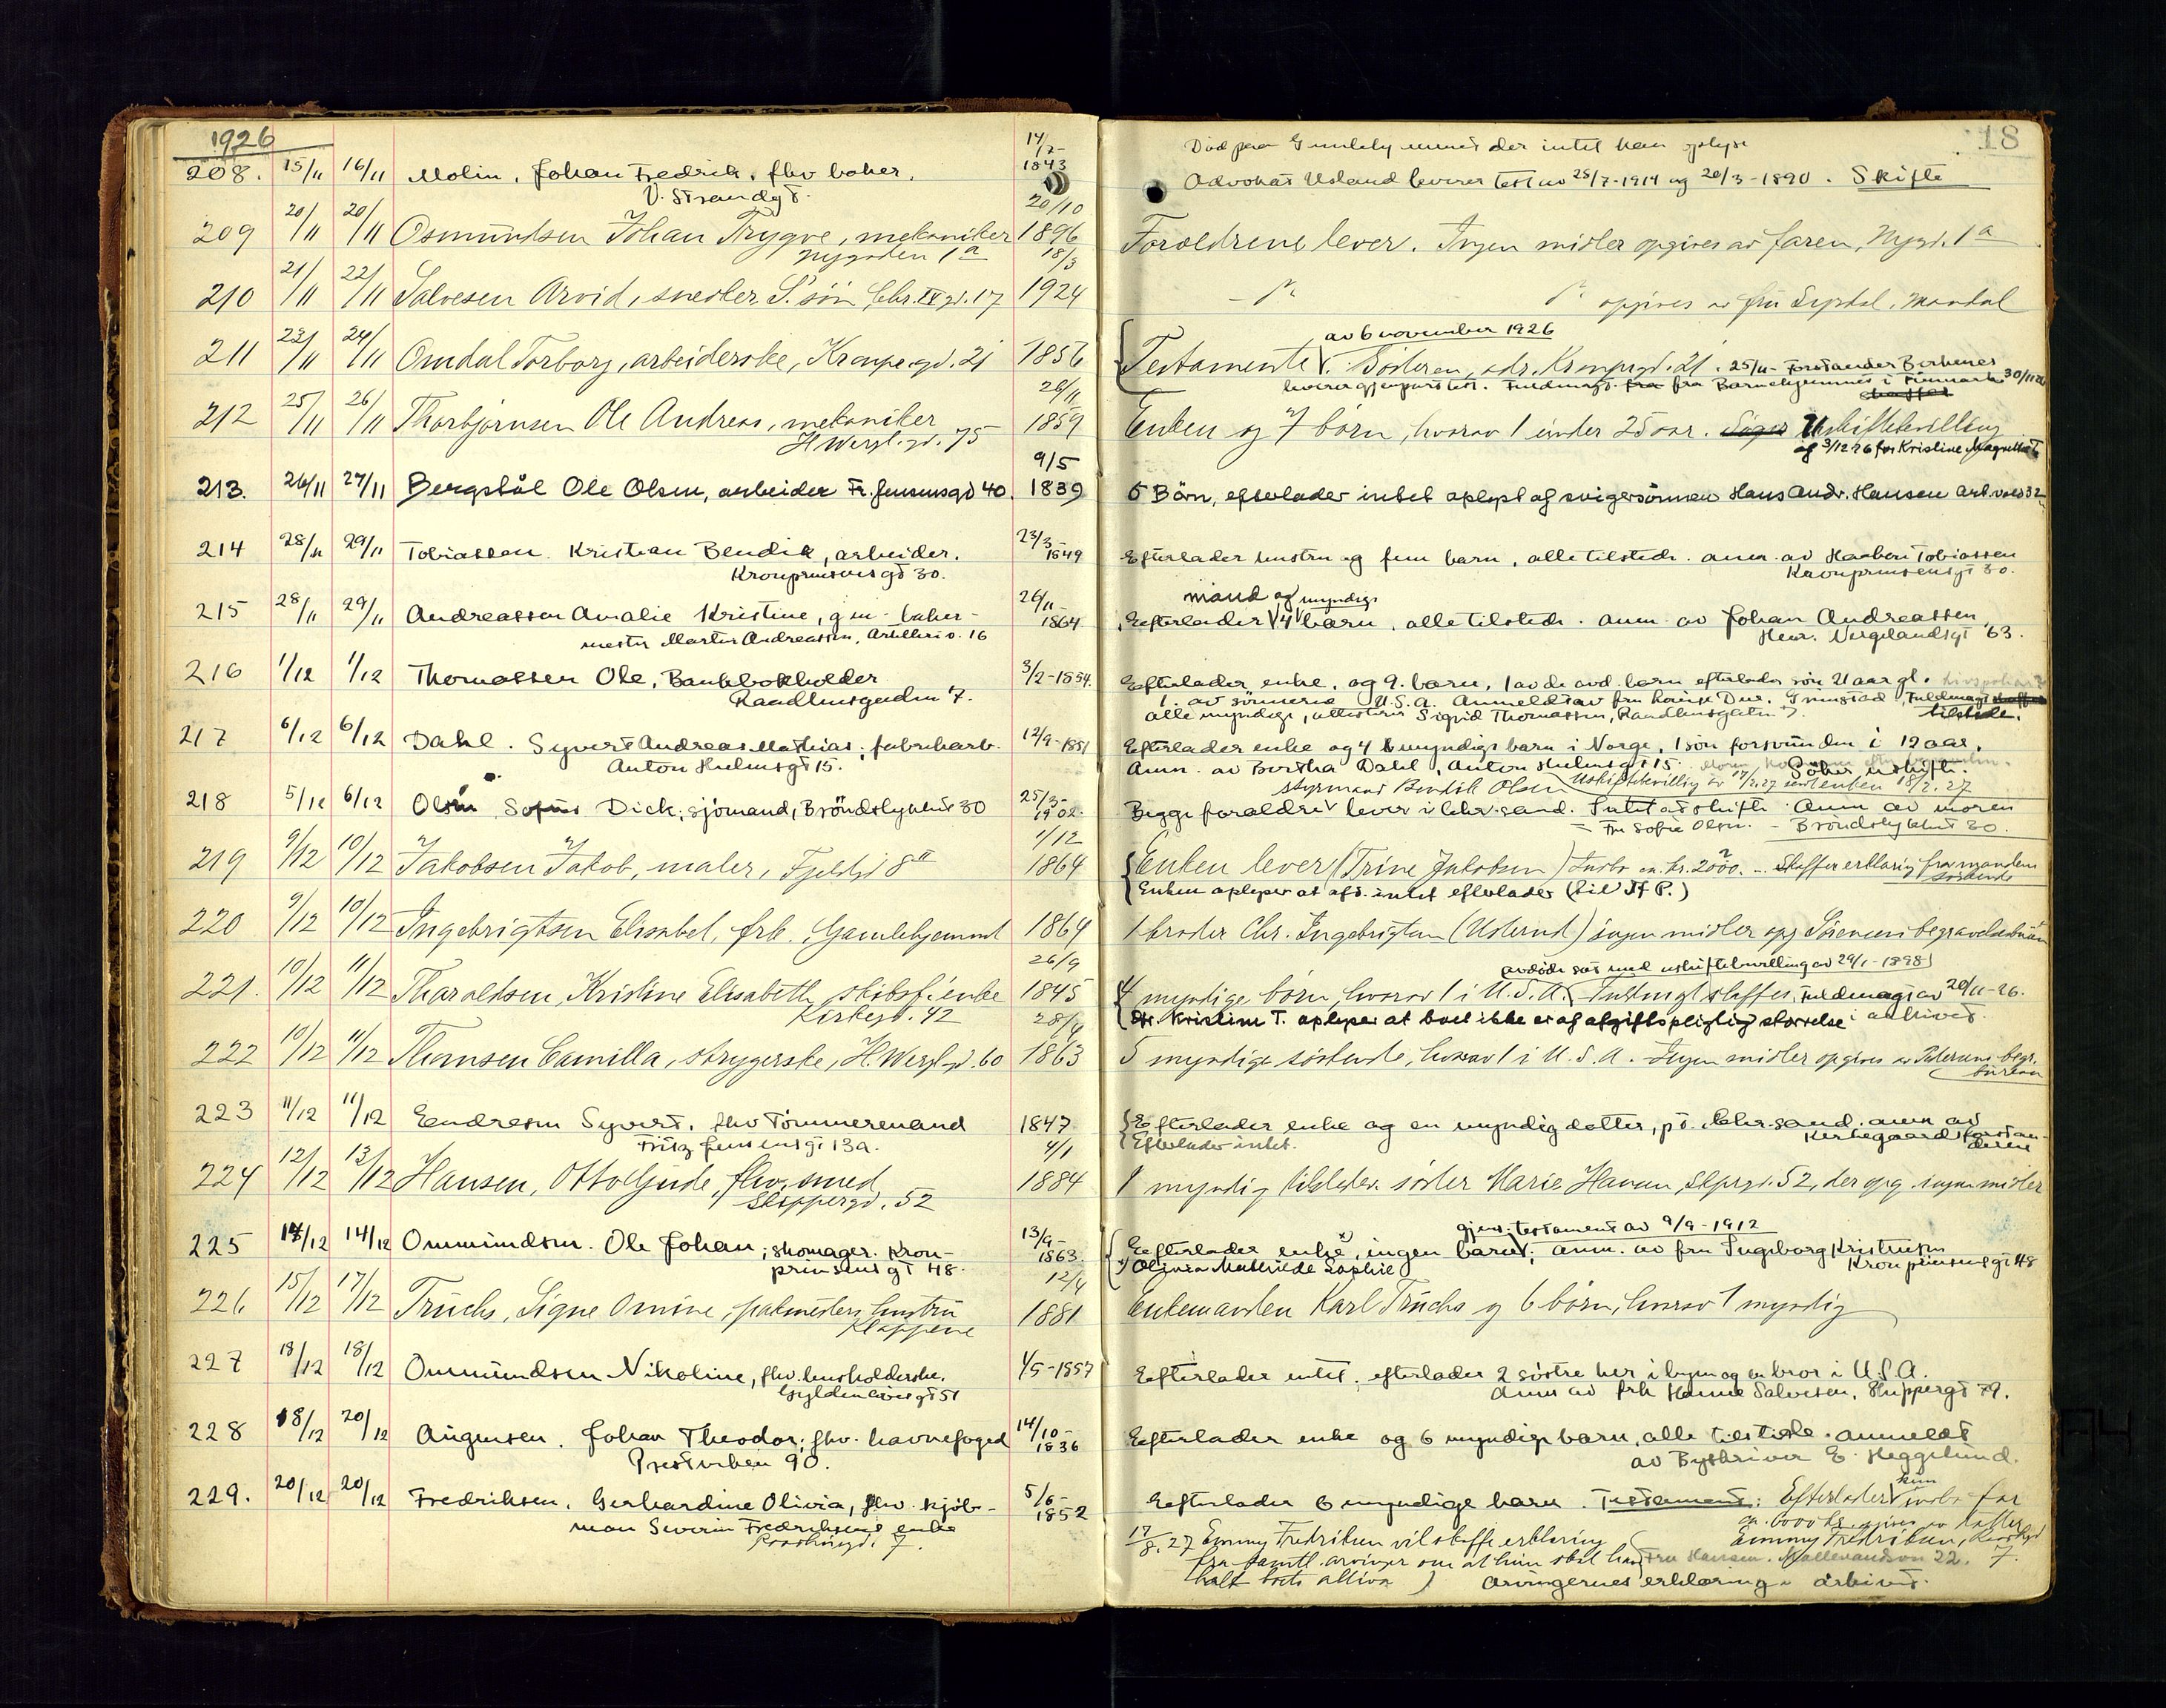 1926
18
208. 15/11 16/11 Molin, Johan Fredrik, fhv baker. 14/7-1843
V. Strandgt.
Död paa Gamleby der intet kan oplyse
Advokat Usland leverer test av 25/7-1914 og 20/3-1890. Skifte
209 20/11 20/11 Osmundsen Johan Trygve, mekaniker 20/10 1896 Forældrene lever. Ingen midler opgives av faren, Nygd. 1a
Nygaden 1a
210 21/11 22/11 Salvesen Arvid, snedker S.' søn Chr. IV gd. 17 18/3 1924 opgives av fru Mandal
av 6 november 1926
211 23/11 24/11 Omdal Torborg, arbeiderske, Kronpr.gd. 21 1856 Testamente. Søsteren, adr. Kronprgd. 21. 25/11- Forstander Birkenes
leverer gjenpart test. Fuldmagt fra Barnehjemmet i Finmark 30/11 26
212 25/11 26/11 Thorbjørnsen Ole Andreas, mekaniker 26/11 1859 Enken og 7 børn, hvorav 1 under 25 aar. Uskiftebevilling
H. Wergl. gd. 75
af 3/12 26 for Kristine Magnetha T
213. 26/11 27/11 Bergstøl Ole Olsen, arbeider Fr. Jensensgd 40. 9/5 1839 5 Børn, efterlader intet oplyst af svigersønnen Hans Andr. Hansen Art.vold 32
214 28/11 29/11 Tobiassen Kristian Bendik, arbeider. 23/3-1849 Efterlader hustru og fem barn, alle tilstede. anm. av Haaben Tobiassen
Kronprinsensgt 30.
Kronprinsensgt 30.
mand og myndige
215 28/11 29/11 Andreassen Amalie Kristine, gm- baker- 26/11-1864 Efterlader 4 barn, alle tilstede. anm. av Johan Andreassen,
mester Martin Andreassen, Artilleriv. 16
Henr. Wergelandsgt 63.
216 1/12 1/12 Thomassen Ole, Bankbokholder 3/2-1854. Efterlader enke, og 9. barn, 1 av de avd. barn efterlader søn 21 aar gl.
Raadhusgaden 7.
1. av sønnerne U.S.A. Anmeldt av fru Louise Due, Grimstad, Fuldmagt
alle myndige, attesterer Sigrid Thomassen, Raadhusgaten 7. tilstede.
217 6/12 6/12 Dahl. Syvert Andreas Mathias; fabrikarb. 12/9-1851 Efterlader enke og 4 myndige barn i Norge, 1 søn forsvunden i 12 aar.
Anton Heelmsgt 15.
Anm. av Bertha Dahl, Anton Heelmsgt 15. Søker uskifte.
Uskiftebevilling av 17/2.27 sendt enken 18/2.27
styrmand Bendik Olsen
218 5/12 6/12 Olsen Sofus Dick; sjömand, Bröndslyktens 30 25/3-1902. Begge forældre lever i Chr.sand. Intet at skifte. Anm av moren
= Fru Sofie Olsen. - Bröndslykten 30.
219 9/12 10/12 Jakobsen Jakob, maler, Fjeldgd 8II 1/12 1864 Enken lever (Trine Jakobsen) Indbo ca. kr. 2000. - Skaffer erklæring fra mandens
søskende
Enken oplyser at afd. intet efterlader (til Sf P.)
220 9/12 10/12 Ingebrigtsen Elisabet, frk. Gamlehjemmet 1864 1 broder Chr. Ingebrigtsen (Usterud) ingen midler opg Sørensens begravelsesbüro
avdøde sat med uskiftebevilling av 29/1-1898
221. 10/12 11/12 Tharaldsen, Kristine Elisabeth skibsf. enke 26/9 1845 4 myndige børn, hvorav 1 i U.S.A. Fuldmagt skaffes, Fuldmagt av 20/11-26.
Kirkegd. 42
Fr. Kristine T. oplyser at boet ikke er af afgiftspligtig størrelse i arkivet.
222 10/12 11/12 Thomsen Camilla, strygerske, H. Wergl.gd. 60 28/4 1863 5 myndige søskende, hvorav 1 i U.S.A. Ingen midler opgives av Petersens begr.
büreau
223 11/12 11/12 Endresen Syvert, fhv Tømmermand 1847 Efterlader enke og en myndig datter, pt. Chr.sand. anm av
Fritz Jensensgt 13a.
Efterlader intet. Kirkegaardsforstan-
deren
224 12/12 13/12 Hansen, Otto Gjude, fhv. smed 4/1 1884 1 myndig tilstedev. søster Marie Hansen, Skprgd. 52, der opg. ingen midler
Skippergd. 52
gjens. testament av 9/9-1912
225 14/12 14/12 Ommundsen. Ole Johan; skomager. Kron- 13/9-1863. Efterlader enke x), ingen barn; anm. av fru Ingeborg Kristensen
prinsensgt 48.
x) Olivia Mathilde Sophie Kronprinsensgt 48
226 15/12 17/12 Truchs, Signe Omine, pakmesters hustru 12/4 1881 Enkemanden Karl Truchs og 6 børn, hvorav 1 myndig
Klappene
227 18/12 18/12 Ommundsen Nikoline, fhv. husholderske. 1/5-1857 Efterlader intet. efterlader 2 søstre her i byen og en bror i U.S.A.
Gyldenløvesgt 51
Anm av frk Hanne Salvesen, Skippergt 79.
228 18/12 20/12 Augensen. Johan Theodor; fhv. havnefoged 14/10-1836 Efterlader enke og 6 myndige barn, alle tilstede. anmeldt
Prestviken 90.
av Byskriver E. Heggelund.
229. 20/12 20/12 Fredriksen, Gerhardine Olivia, fhv. kjøb- 5/6-1852 Efterlader 6 myndige barn. Testament: Efterlader kun indbo for
man Severin Fredriksens enke
Raadhusgd. 7.
ca. 6000 kr. opgives av datter
17/8.27 Emmy Fredriksen vil skaffe erklæring Emmy Fredriksen, Raadhgd
fra samtl. arvinger om at hun skal ha Fru Hansen. Møllevandsvn 22. 7.
halt boets aktiva ) Arvingernes erklæring i arkivet.